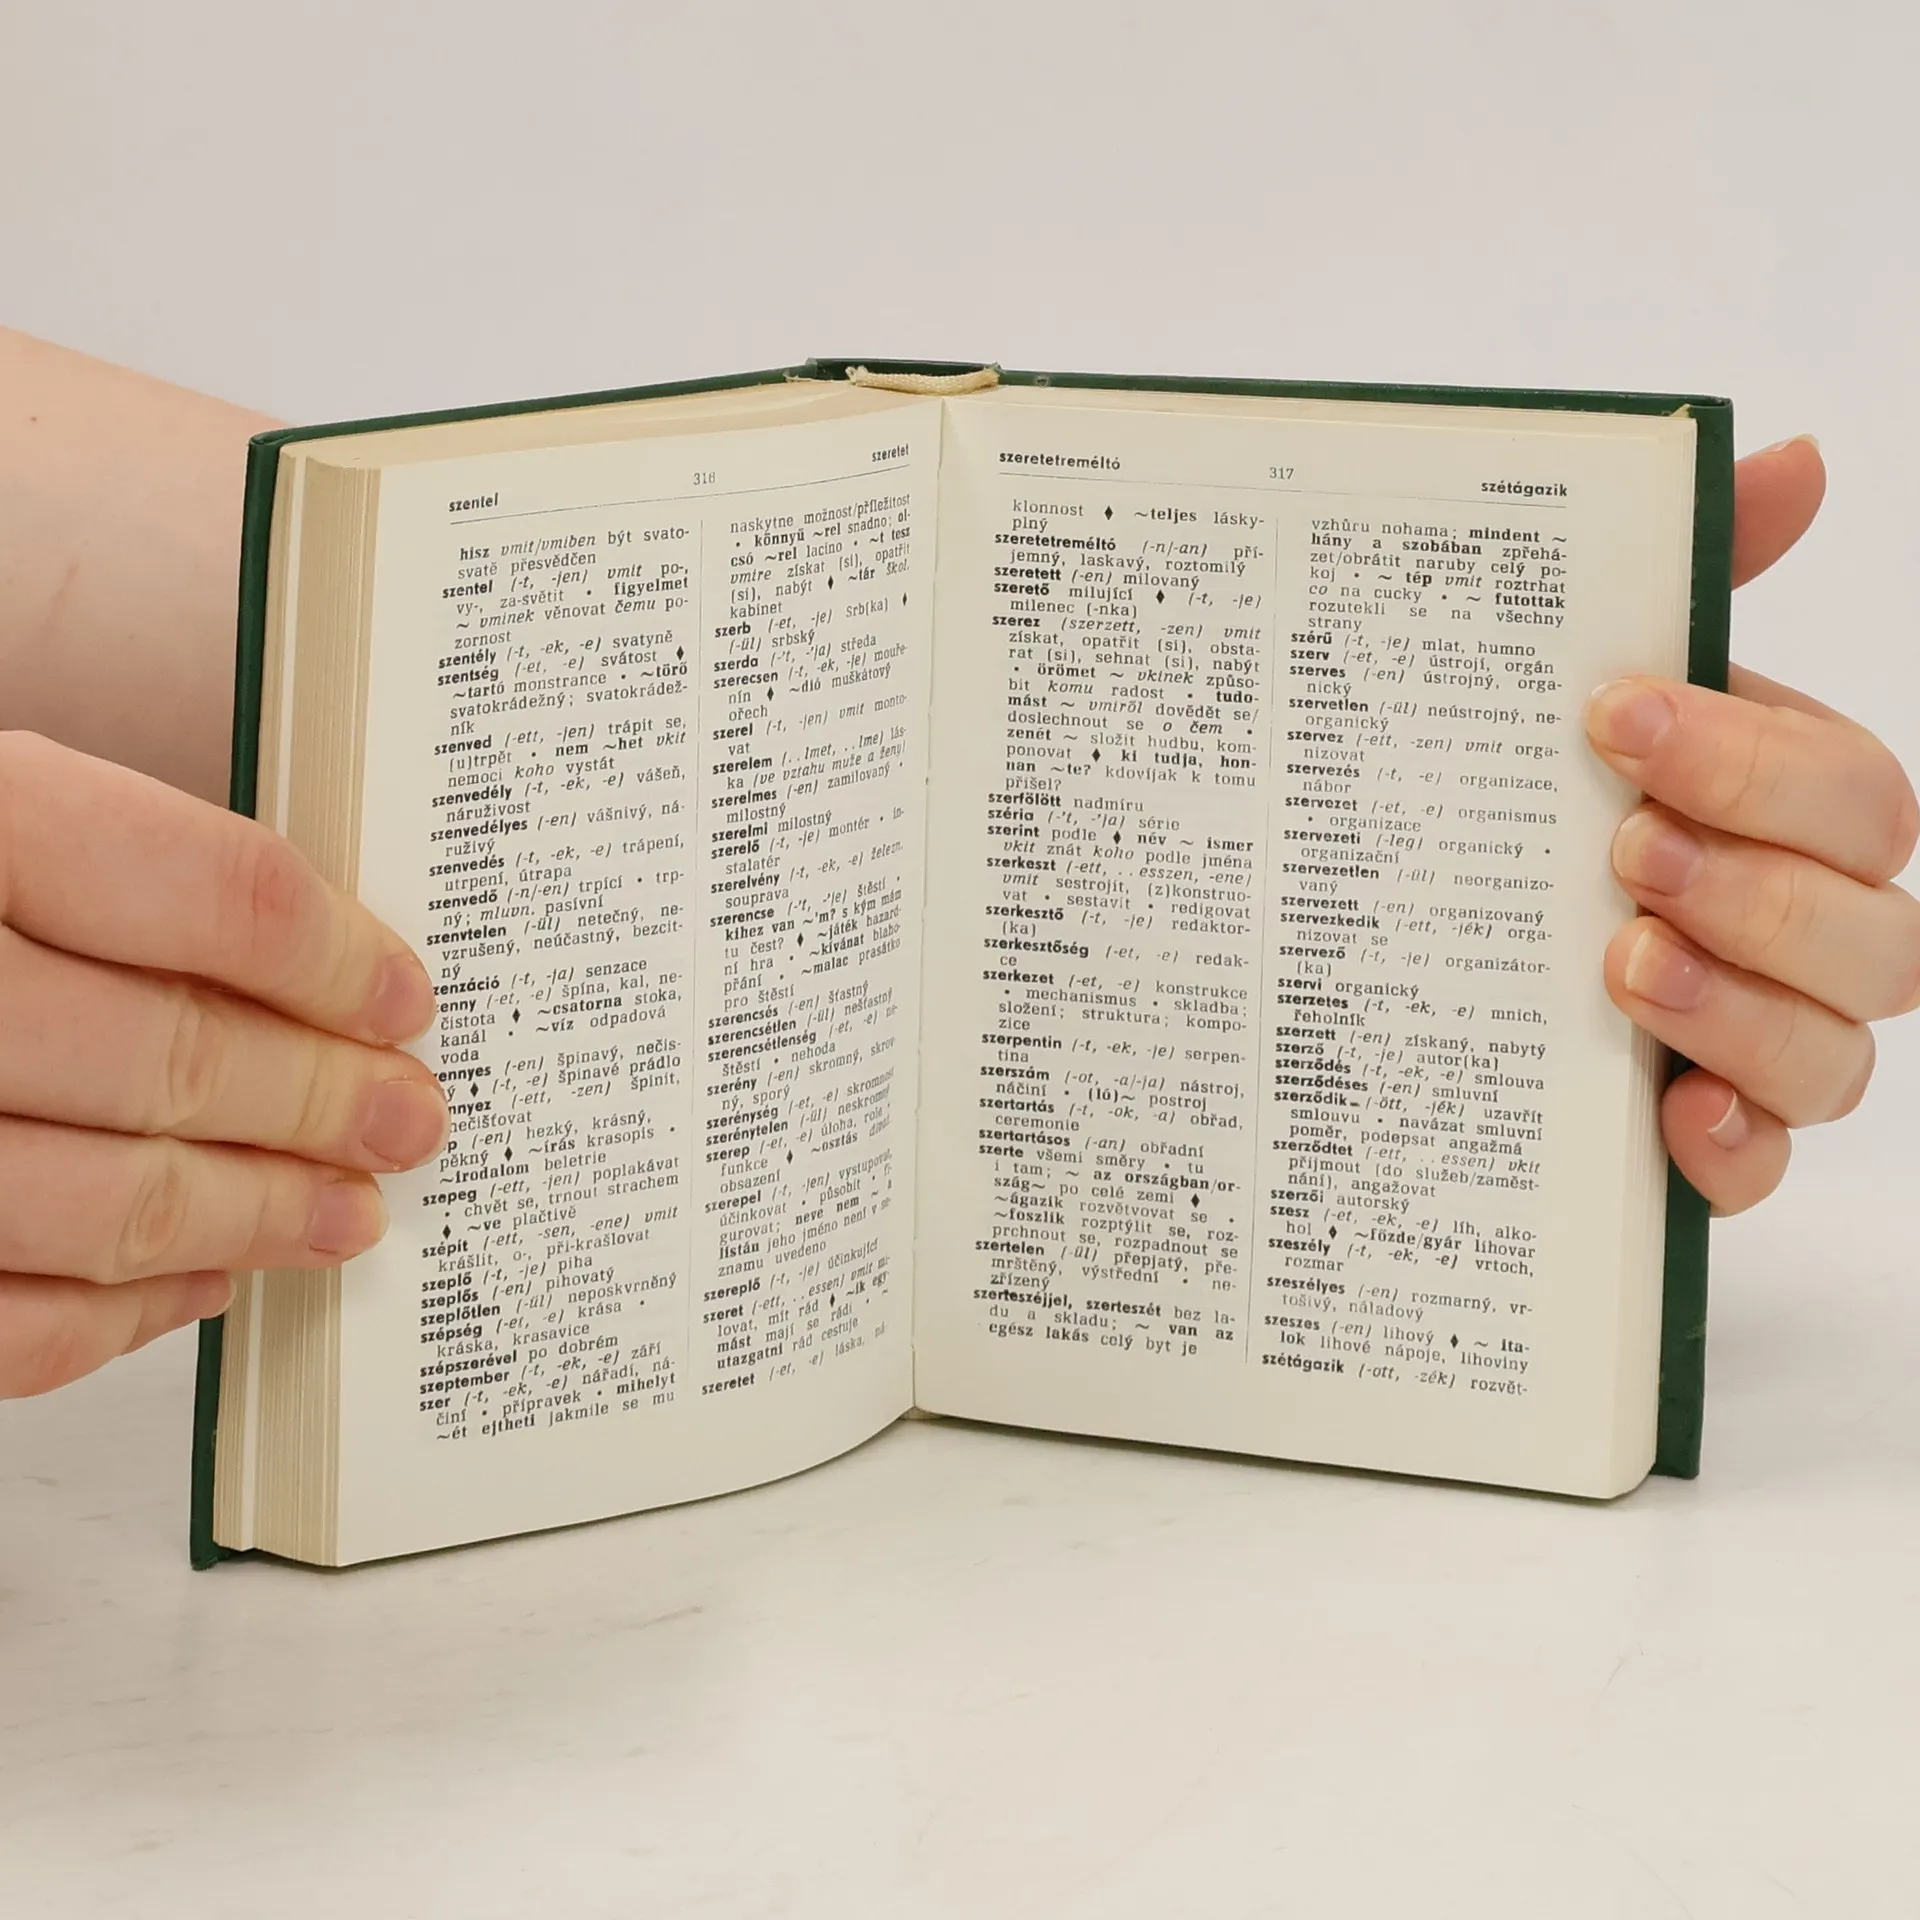 szentel
316
szeretet
hisz vmit/vmiben být svato-
svatě přesvědčen
szentel (-t, -jen) vmit po-,
vy-, za-světit • figyelmet
~ vminek věnovat čemu po-
zornost
szentély (-t, -ek, -e) svatyně
szentség (-et, -e) svátost ♦
~tartó monstrance • ~törő
svatokrádežný; svatokrádež-
ník
szenved (-ett, -jen) trápit se,
(u)trpět • nem ~het vkit
nemoci koho vystát
szenvedély (-t, -ek, -e) vášeň,
náruživost
szenvedélyes (-en) vášnivý, ná-
ruživý
szenvedés (-t, -ek, -e) trápení,
utrpení, útrapa
szenvedő (-n/-en) trpící • trp-
ný; mluvn. pasívní
szenvtelen (-ül) netečný, ne-
vzrušený, neúčastný, bezcit-
ný
zenzáció (-t, -ja) senzace
enny (-et, -e) špína, kal, ne-
čistota ♦ ~csatorna stoka,
kanál • ~víz odpadová
voda
ennyes (-en) špinavý, nečis-
ý ♦ (-t, -e) špinavé prádlo
nnyez (-ett, -zen) špinit,
nečišťovat
p (-en) hezký, krásný,
pěkný ♦ ~írás krasopis •
~irodalom beletrie
szepeg (-ett, -jen) poplakávat
• chvět se, trnout strachem
♦ ~ve plačtivě
szépít (-ett, -sen, -ene) vmit
krášlit, o-, při-krašlovat
szeplő (-t, -je) piha
szeplős (-en) pihovatý
szeplőtlen (-ül) neposkvrněný
szépség (-et, -e) krása •
kráska, krasavice
szépszerével po dobrém
szeptember (-t, -ek, -e) září
szer (-t, -ek, -e) nářadí, ná-
činí • přípravek • mihelyt
~ét ejtheti jakmile se mu
naskytne možnost/příležitost
• könnyű ~rel snadno; ol-
csó ~rel lacino • ~t tesz
vmire získat (si), opatřit
(si), nabýt ♦ ~tár škol.
kabinet
szerb (-et, -je) Srb(ka) ♦
(-ül) srbský
szerda (-'t, -'ja) středa
szerecsen (-t, -ek, -je) mouře-
nín ♦ ~dió muškátový
ořech
szerel (-t, -jen) vmit monto-
vat
szerelem (..lmet, ..lme) lás-
ka (ve vztahu muže a ženy)
szerelmes (-en) zamilovaný •
milostný
szerelmi milostný
szerelő (-t, -je) montér • in-
stalatér
szerelvény (-t, -ek, -e) železn.
souprava
szerencse (-'t, -'je) štěstí •
kihez van ~'m? s kým mám
tu čest? ♦ ~játék hazard-
ní hra • ~kívánat blaho-
přání • ~malac prasátko
pro štěstí
szerencsés (-en) šťastný
szerencsétlen (-ül) nešťastný
szerencsétlenség (-et, -e) ne-
štěstí • nehoda
szerény (-en) skromný, skrov-
ný, sporý
szerénység (-et, -e) skromnost
szerénytelen (-ül) neskromný
szerep (-et, -e) úloha, role,
funkce ♦ ~osztás divad.
obsazení
szerepel (-t, -jen) vystupovat,
účinkovat • působit • fi-
gurovat; neve nem ~ a
listán jeho jméno není v se-
znamu uvedeno
szereplő (-t, -je) účinkující
szeret (-ett, ..essen) vmit mi-
lovat, mít rád ♦ ~ik egy-
mást mají se rádi • ~
utazgatni rád cestuje
szeretet (-et, -e) láska, ná-
szeretetreméltó
317
szétágazik
klonnost ♦ ~teljes lásky-
plný
szeretetreméltó (-n/-an) pří-
jemný, laskavý, roztomilý
szeretett (-en) milovaný
szerető milující ♦ (-t, -je)
milenec (-nka)
szerez (szerzett, -zen) vmit
získat, opatřit (si), obsta-
rat (si), sehnat (si), nabýt
• örömet ~ vkinek způso-
bit komu radost • tudo-
mást ~ vmiről dovědět se/
doslechnout se o čem •
zenét ~ složit hudbu, kom-
ponovat ♦ ki tudja, hon-
nan ~te? kdovíjak k tomu
přišel?
szerfölött nadmíru
széria (-'t, -'ja) série
szerint podle ♦ név ~ ismer
vkit znát koho podle jména
szerkeszt (-ett, ..esszen, -ene)
vmit sestrojit, (z)konstruo-
vat • sestavit • redigovat
szerkesztő (-t, -je) redaktor-
(ka)
szerkesztőség (-et, -e) redak-
ce
szerkezet (-et, -e) konstrukce
• mechanismus • skladba;
složení; struktura; kompo-
zice
szerpentin (-t, -ek, -je) serpen-
tina
szerszám (-ot, -a/-ja) nástroj,
náčiní • (ló)~ postroj
szertartás (-t, -ok, -a) obřad,
ceremonie
szertartásos (-an) obřadní
szerte všemi směry • tu
i tam; ~ az országban/or-
szág~ po celé zemi ♦
~ágazik rozvětvovat se •
~foszlik rozptýlit se, roz-
prchnout se, rozpadnout se
szertelen (-ül) přepjatý, pře-
mrštěný, výstřední • ne-
zřízený
szerteszéjjel, szerteszét bez la-
du a skladu; ~ van az
egész lakás celý byt je
vzhůru nohama; mindent ~
hány a szobában zpřehá-
zet/obrátit naruby celý po-
koj • ~ tép vmit roztrhat
co na cucky • ~ futottak
rozutekli se na všechny
strany
szérű (-t, -je) mlat, humno
szerv (-et, -e) ústrojí, orgán
szerves (-en) ústrojný, orga-
nický
szervetlen (-ül) neústrojný, ne-
organický
szervez (-ett, -zen) vmit orga-
nizovat
szervezés (-t, -e) organizace,
nábor
szervezet (-et, -e) organismus
• organizace
szervezeti (-leg) organický •
organizační
szervezetlen (-ül) neorganizo-
vaný
szervezett (-en) organizovaný
szervezkedik (-ett, -jék) orga-
nizovat se
szervező (-t, -je) organizátor-
(ka)
szervi organický
szerzetes (-t, -ek, -e) mnich,
řeholník
szerzett (-en) získaný, nabytý
szerző (-t, -je) autor(ka)
szerződés (-t, -ek, -e) smlouva
szerződéses (-en) smluvní
szerződik (-ött, -jék) uzavřít
smlouvu • navázat smluvní
poměr, podepsat angažmá
szerződtet (-ett, ..essen) vkit
přijmout (do služeb/zaměst-
nání), angažovat
szerzői autorský
szesz (-et, -ek, -e) líh, alko-
hol ♦ ~főzde/gyár lihovar
szeszély (-t, -ek, -e) vrtoch,
rozmar
szeszélyes (-en) rozmarný, vr-
tošivý, náladový
szeszes (-en) lihový ♦ ~ ita-
lok lihové nápoje, lihoviny
szétágazik (-ott, -zék) rozvět-